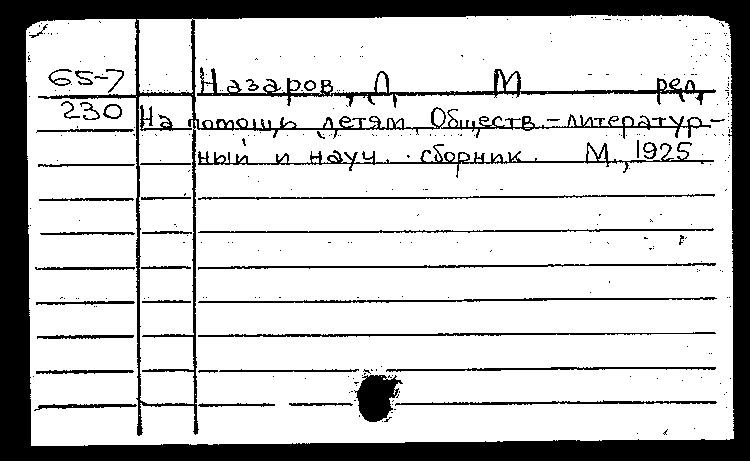 65-7 Назаров, Л М ред.
230 На помощь детям. Обществ.-литератур-
ный и науч. сборник. М., 1925.